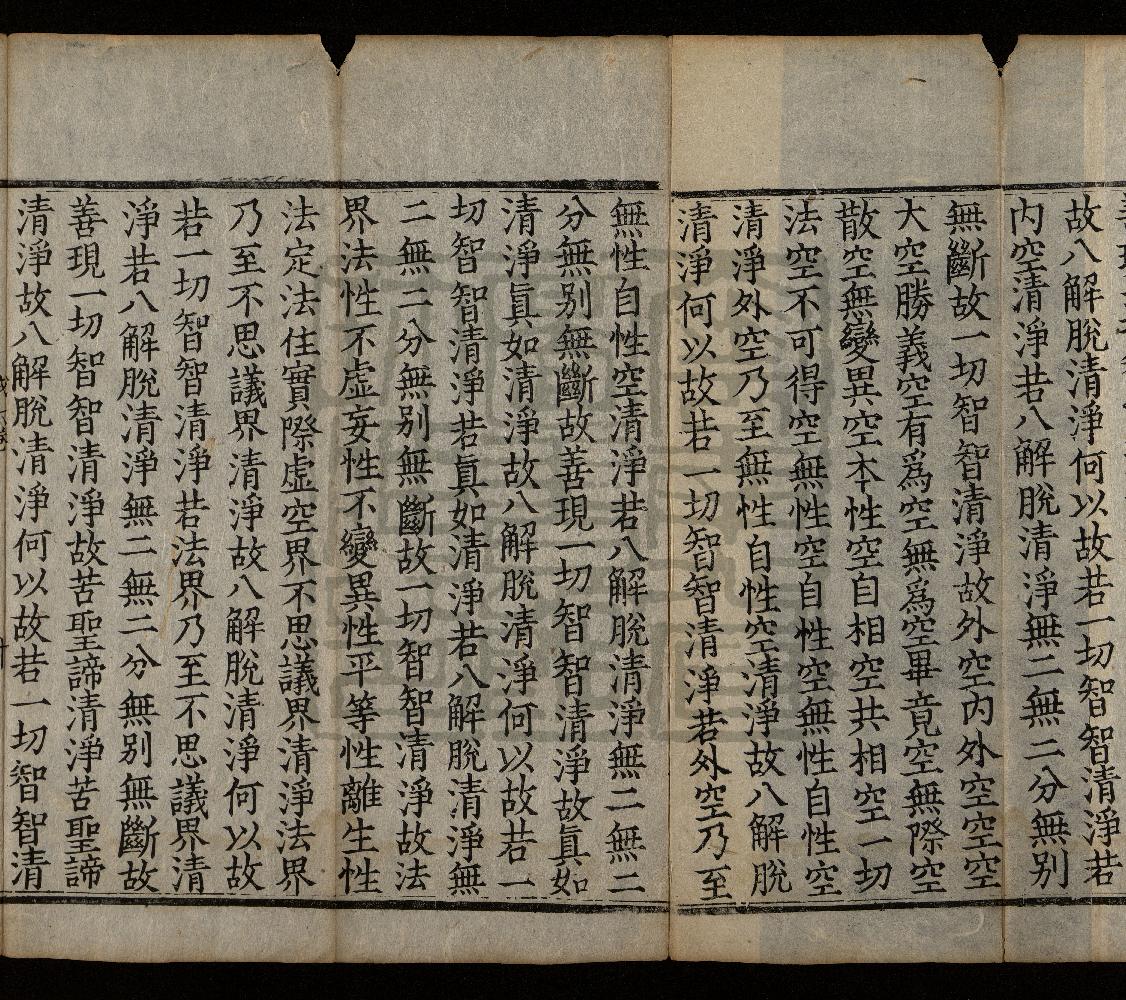 故八解脫清淨何以故若一切智智清淨若
内空清淨若八解脫清淨無二無二分無别
無斷故一切智智清淨故外空内外空空空
大空勝義空有爲空無爲空畢竟空無際空
散空無變異空本性空自相空共相空一切
法空不可得空無性空自性空無性自性空
清淨外空乃至無性自性空清淨故八解脫
清淨何以故若一切智智清淨若外空乃至
無性自性空清淨若八解脫清淨無二無二
分無别無斷故善現一切智智清淨故眞如
清淨眞如清淨故八解脫清淨何以故若一
切智智清淨若眞如清淨若八解脫清淨無
二無二分無别無斷故一切智智清淨故法
界法性不虛妄性不變異性平等性離生性
法定法住實際虛空界不思議界清淨法界
乃至不思議界清淨故八解脫清淨何以故
若一切智智清淨若法界乃至不思議界清
淨若八解脫清淨無二無二分無别無斷故
善現一切智智清淨故苦聖諦清淨苦聖諦
清淨故八解脫清淨何以故若一切智智清